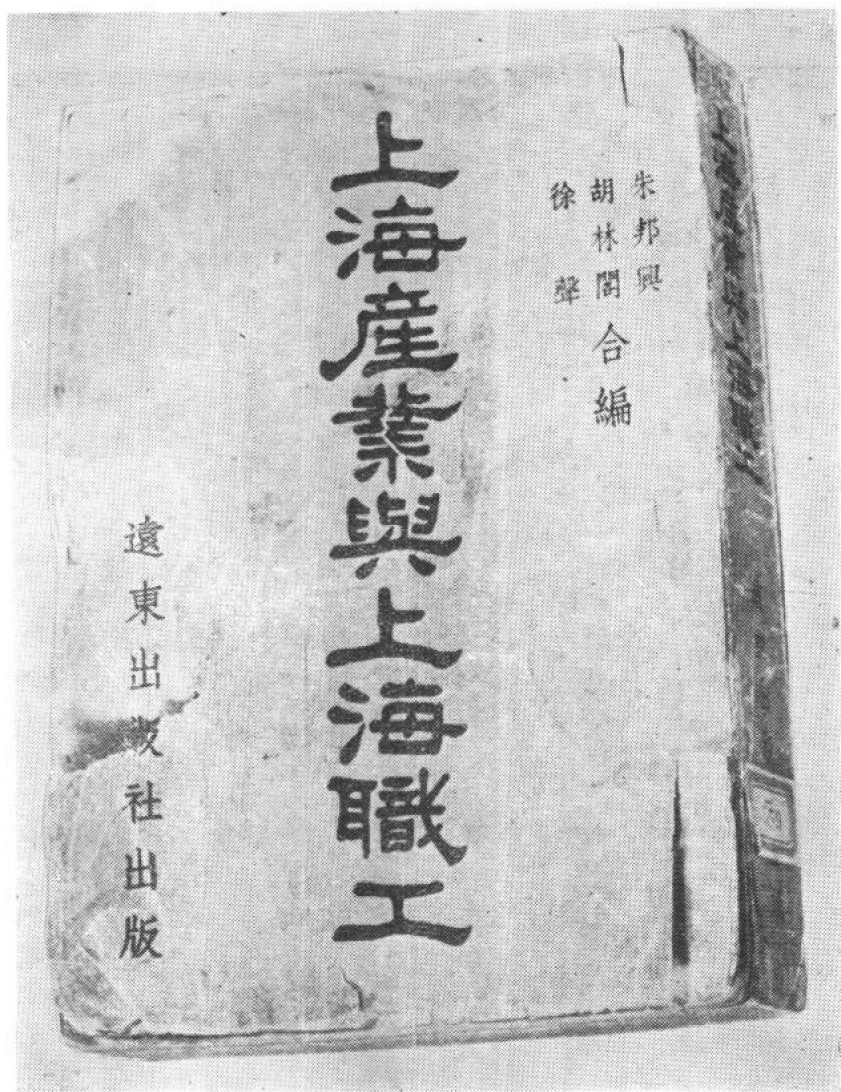 朱邦興
胡林閣
徐聲
合編
上海產業與上海職工
遠東出版社出版
上海產業與上海職工